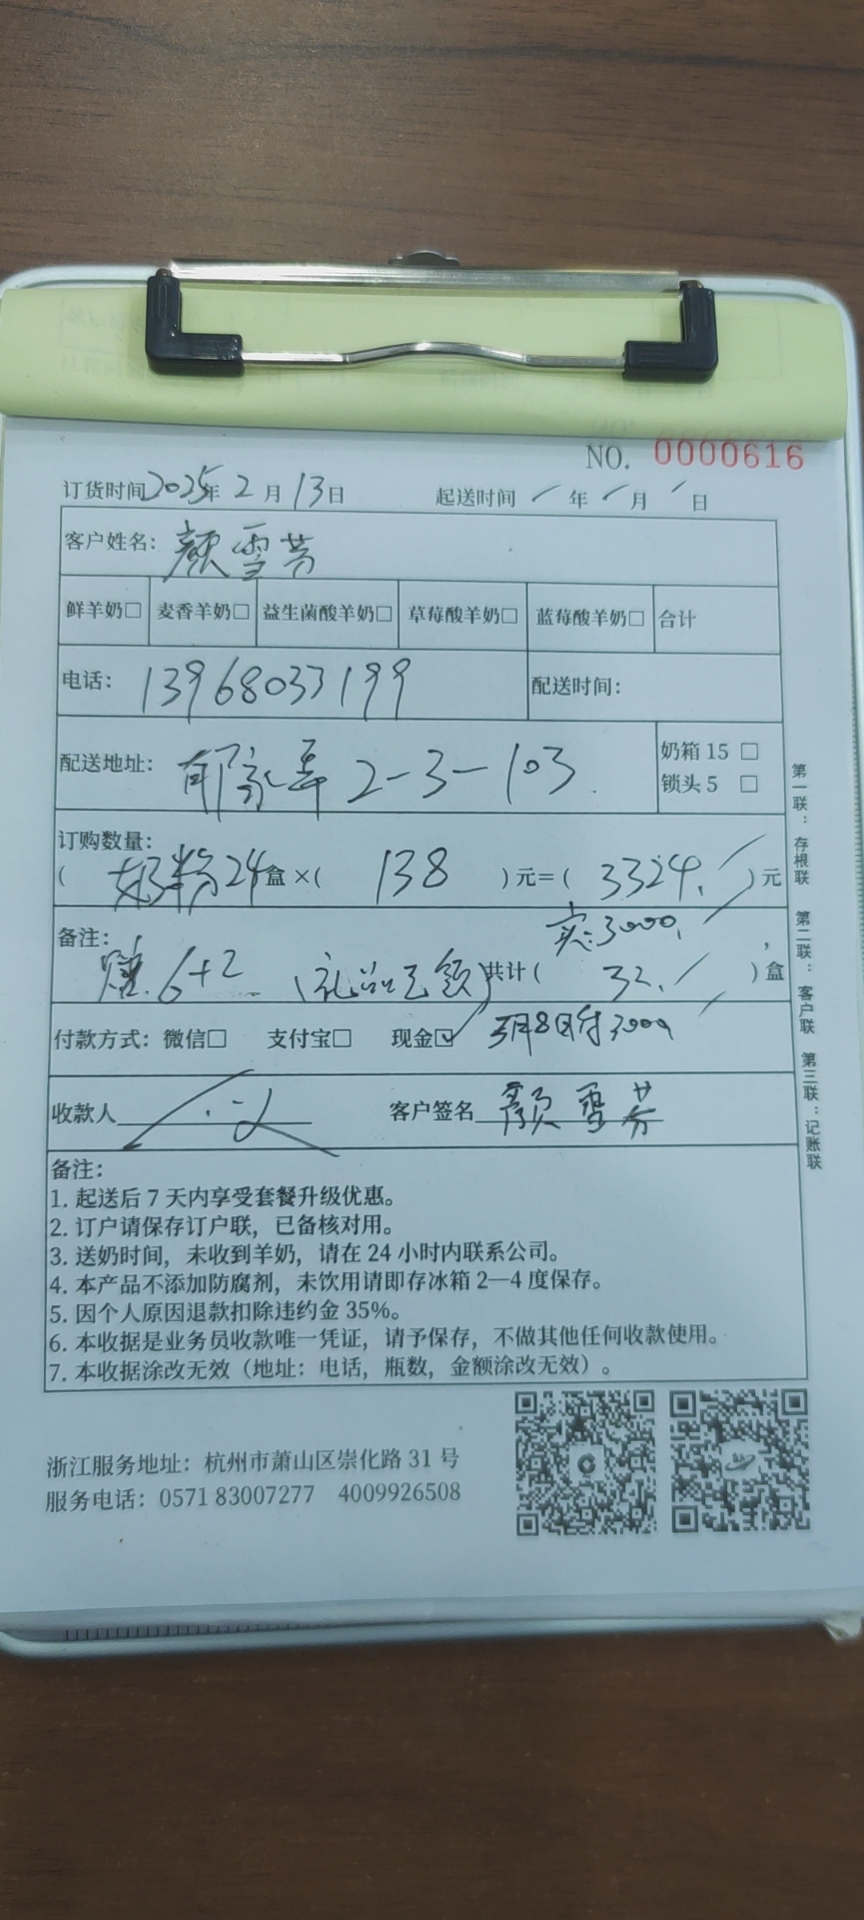 NO. 0000616
订货时间2025年 2 月 13日 起送时间 / 年 / 月 / 日
客户姓名：颜雪芬
鲜羊奶□ 麦香羊奶□ 益生菌酸羊奶□ 草莓酸羊奶□ 蓝莓酸羊奶□ 合计
电话：13968033199 配送时间：
配送地址：郁家弄 2-3-103 奶箱 15 □
锁头 5 □
订购数量：
( 奶粉24盒 ×( 138 )元=( 3324. )元
实:3000.
备注：
赠 6+2 (礼品已领) 共计( 32. )盒
付款方式：微信□ 支付宝□ 现金☑ 3月8日付3000
收款人 客户签名 颜雪芬
备注：
1. 起送后 7 天内享受套餐升级优惠。
2. 订户请保存订户联，已备核对用。
3. 送奶时间，未收到羊奶，请在 24 小时内联系公司。
4. 本产品不添加防腐剂，未饮用请即存冰箱 2—4 度保存。
5. 因个人原因退款扣除违约金 35%。
6. 本收据是业务员收款唯一凭证，请予保存，不做其他任何收款使用。
7. 本收据涂改无效（地址：电话，瓶数，金额涂改无效）。
第一联：存根联 第二联：客户联 第三联：记账联
浙江服务地址：杭州市萧山区崇化路 31 号
服务电话：0571 83007277 4009926508